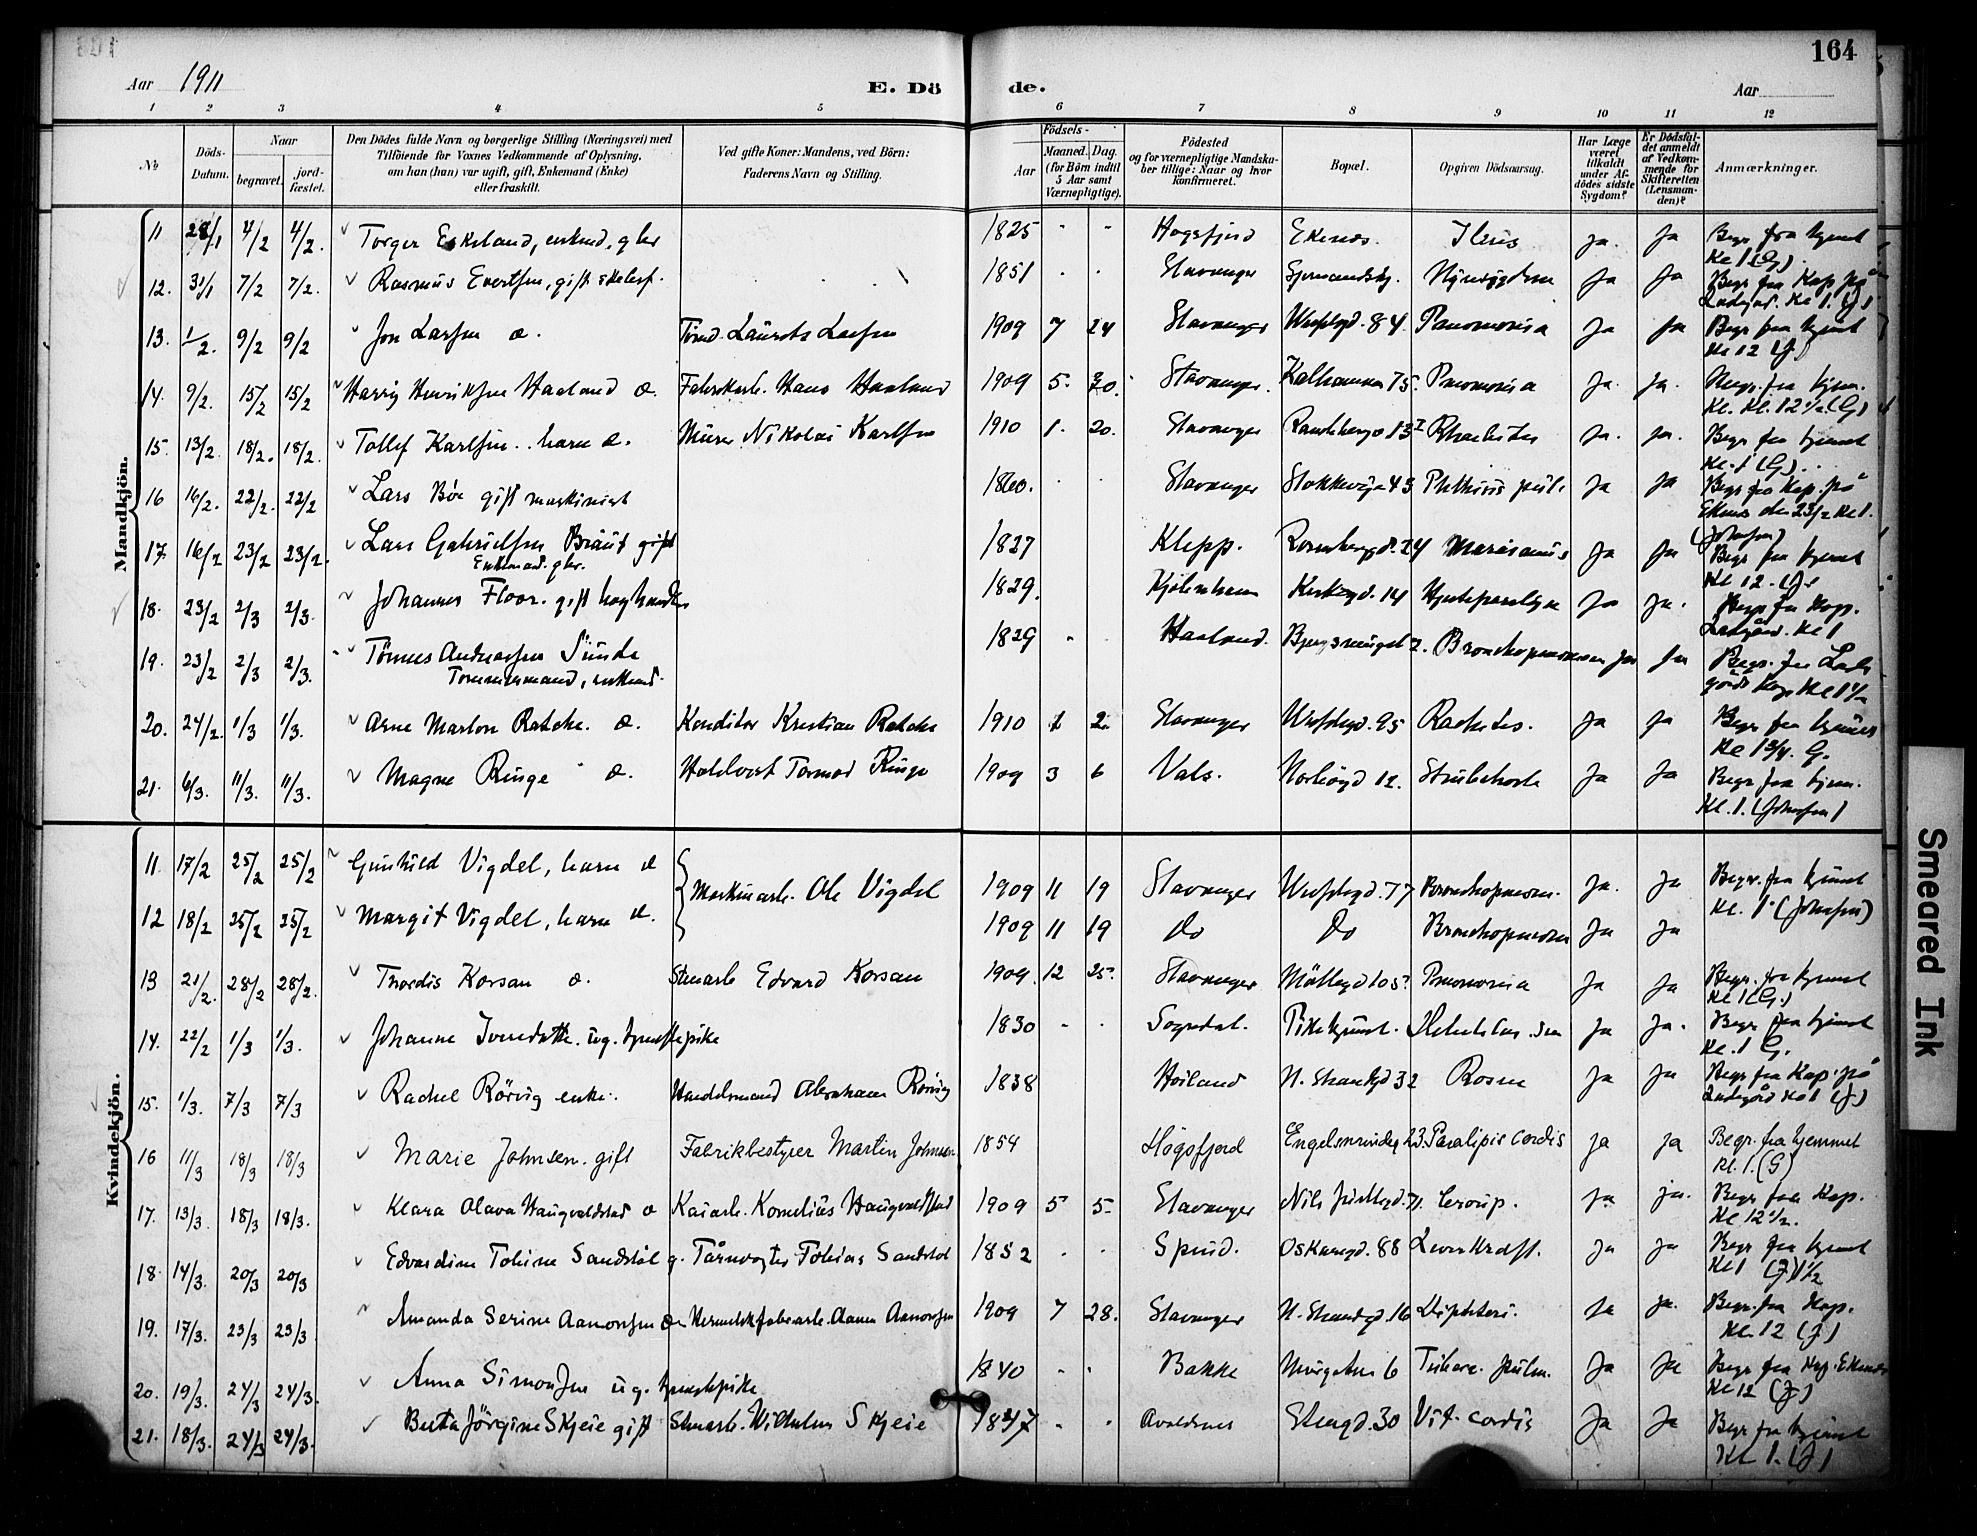 164
Aar 1911
E. Dö
de.
Aar
1 2 3 4 5 6 7 8 9 10 11 12
No
Döds-Datum.
Naar
begravet.
jord-fæstet.
Den Dödes fulde Navn og borgerlige Stilling (Næringsvei) med
Tilföiende for Voxnes Vedkommende af Oplysning,
om han (hun) var ugift, gift, Enkemand (Enke)
eller fraskilt.
Ved gifte Koner: Mandens, ved Börn:
Faderens Navn og Stilling.
Födsels-
Aar
Maaned. Dag.
(for Börn indtil
5 Aar samt
Værnepligtige).
Födested
og for værnepligtige Mandska-
ber tillige: Naar og hvor
konfirmeret.
Bopæl.
Opgiven Dödsaarsag.
Har Læge
været
tilkaldt
under Af-
dödes sidste
Sygdom?
Er Dödsfal-
det anmeldt
af Vedkom-
mende for
Skifteretten
(Lensman-
den)?
Anmærkninger.
Mandkjön.
11 28/1 4/2 4/2. Torger Eskeland, enkmd, gbr 1825 - - Høgsfjord Ekenæs. Ileus ja. ja Begr. fra hjemt
Kl 1 (G).
12. 31/1 7/2 7/2. Rasmus Evertsen, gift 1851 Stavanger Ja Ja Begr fra Kap. på
Ladegård. Kl 1. (J)
13. 1/2. 9/2 9/2 Jon Larsen æ. Laurits Larsen 1909 7 24 Stavanger 84. Pneumonia Ja ja Begr fra hjemt
Kl 12 (J)
14. 9/2. 15/2 15/2 Harry Henriksen Haaland æ. Fabrikarb. Hans Haaland 1909 5. 30. Stavanger. Kalhammer 75. Pneumonia Ja. ja. Begr. fra hjem.
Kl. Kl. 12 1/2 (G)
15. 13/2 18/2. 18/2. Tollef Karlsen. barn æ. Murer Nikolai Karlsen 1910 1. 20. Stavanger ja. ja. Begr fra hjemt
Kl. 1 (G)
16 16/2. 22/2. 22/2 Lars Bøe gift maskinist 1860. Stavanger Stokkaveien 45 Phthisis pul. Ja Ja Begr fra Kap. på
Ekenes den 23/2 Kl 1.
(Johnsen)
17. 16/2 23/2 23/2. Lars Gabrielsen Braut gift
Enkmand. gbr. 1827 Klepp. Rosenbergd. 24 Marasmus Ja Ja Begr fra hjemt
Kl 12. (J)
18. 23/2 2/3 2/3. Johannes Floor. gift 1829. Kjøbenhavn Kirkegd. 14 ja ja. Begr fra Kap.
Ladegård. Kl 1
19. 23/2 2/3 2/3. Tönnes Andreassen Sunde
Tømmermand, enkmd. 1829 - Haaland. Bronchopneumon ja ja Begr. fra Lade
gårds Kap Kl 1 1/2
20. 24/2. 1/3 1/3. Arne Marton Ratche. æ. Konditor Kristian Ratche 1910 Stavanger 95 Rachitis. Ja ja Begr fra hjemmet
Kl 1 3/4. G.
21. 6/3. 11/3. 11/3. Magne Ringe æ. Tormod Ringe 1909 3 6 Vats. 12. Strubehoste Ja Ja Begr fra hjem.
Kl. 1. (Johnsen)
Kvindekjön.
11. 17/2 25/2 25/2 Gunhild Vigdel, barn æ Maskinarb. Ole Vigdel 1909 11 19 Stavanger 77 Bronchopneum. Ja. Ja Begr. fra hjemmet
Kl. 1 (Johnsen)
12 18/2 25/2 25/2 Margit Vigdel, barn æ. 1909 11 19 Do Do Bronchopneum Ja Ja
13 21/2. 28/2 28/2. Thordis Korsan æ. Stenarb Edvard Korsan 1909. 12 25. Stavanger Møllegd 105 Pneumonia Ja Ja Begr. fra hjemmet
Kl 1 (G.)
14. 22/2 1/3 1/3. Johanne Iversdatter. ug. tjenestepike 1830 - - Sogndal. Ja Ja. Begr fra hjemt
Kl. 1 G.
15. 1/3. 7/3 7/3 Rachel Rörvig enke. Handelsmand Abraham Rörvig 1838 Høiland N. Strandgd 32 Rosen Ja Ja Begr fra Kap. på
Ladegård Kl 1 (J)
16 11/3 18/3 18/3 Marie Johnsen. gift Fabrikbestyrer Martin Johnsen 1854 Høgsfjord Engelsminden 23. Paralysis cordis ja ja Begr. fra hjemmet
kl. 1. (G)
17. 13/3. 18/3 18/3. Klara Olava Haugvaldstad æ Kaiarb. Kornelius Haugvaldstad 1909 5 5. Stavanger Nils Juelsgd. 71. Croup. ja ja. Begr fra Kap.
Kl 12 1/2.
18. 14/3. 20/3 20/3 Edvardine Tobine Sandstöl g. Tårnvogter Tobias Sandstöl 1852 - - Oskarsgd. 88 Leverkræft. ja ja Begr fra hjemt
Kl 1 (J) 1 1/2
19. 17/3. 23/3 23/3 Amanda Serine Aanonsen æ Hermetikfabrarb. Aanen Aanonsen 1909 7 28. Stavanger N. Strandgd. 16 Diphteri. Ja ja. Begr. fra Kap.
Kl. 12 (J)
20. 19/3. 24/3 24/3. Anna Simonsen ug. tjenestepike 1840 - - Bakke 6 Tuberc. pulm. Ja Ja Begr fra Kap. Ekenæs
Kl 12 (J)
21. 18/3. 24/3 24/3. Berta Jörgine Skjeie gift Stenarb. Wilhelm Skjeie 1847 - - Avaldsnes Stengd. 30 Vit. cordis Ja Ja Begr fra hjemt
Kl 1. (J)
Smeared Ink